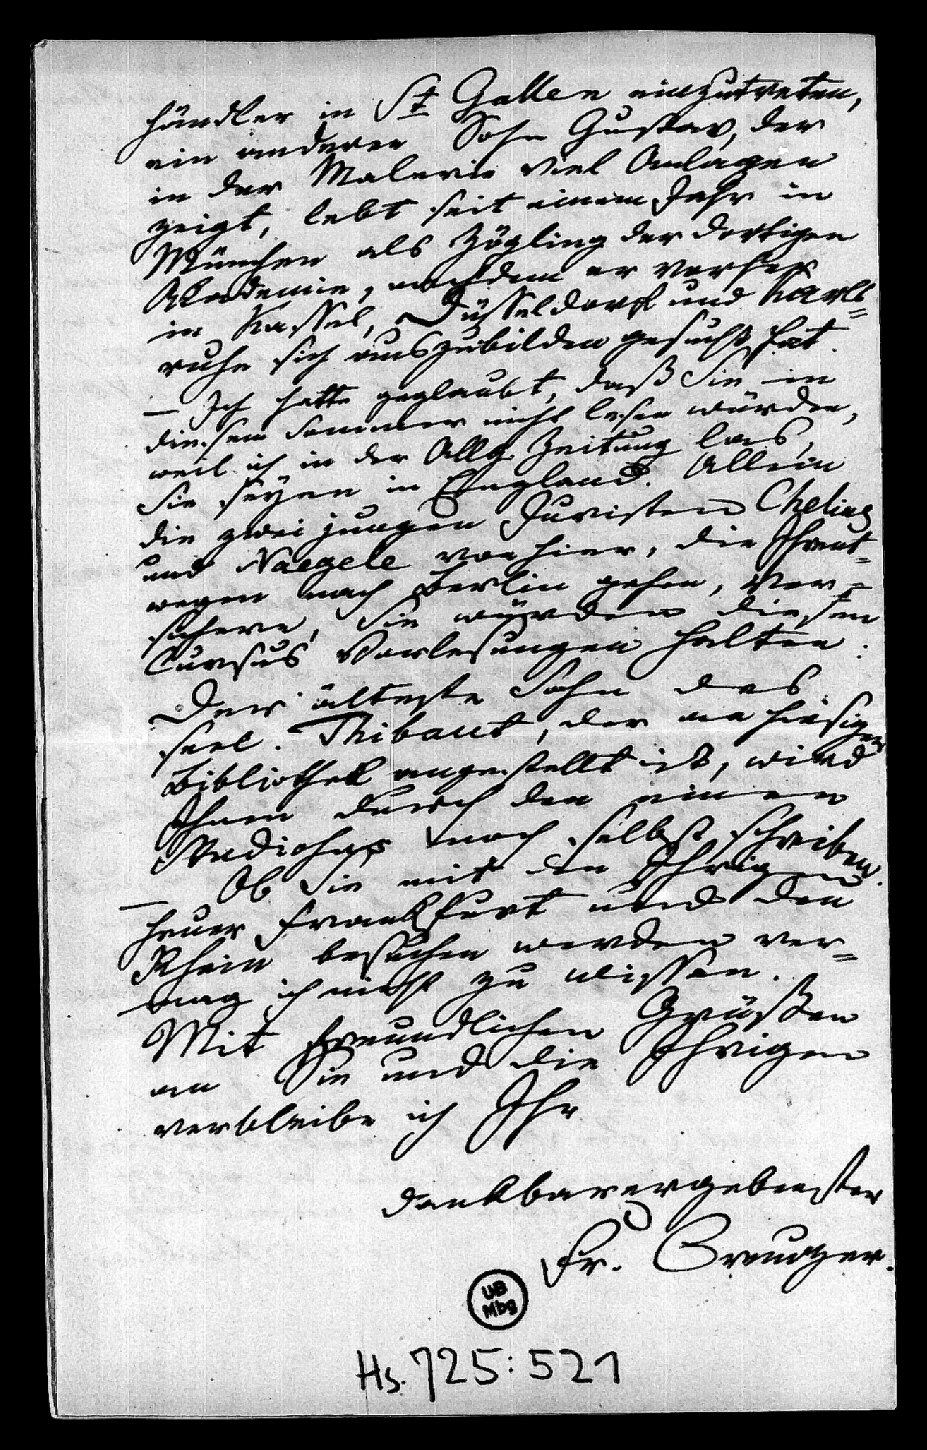 händler in St Gallen einzutreten,
ein anderer Sohn Gustav, der
in der Malerei viel Anlagen
zeigt, lebt seit einem Jahr in
München als Zögling der dortigen
Akademie, nachdem er vorher
in Kassel, Düsseldorf und Karls=
ruhe sich auszubilden gesucht hat.
— Ich hatte geglaubt, daß Sie in
diesem Sommer nicht lesen würden,
weil ich in der Allg Zeitung las,
Sie seyen in England. Allein
die zwei jungen Juristen Chelius
und Naegele von hier, die Ihret=
wegen nach Berlin gehen, ver=
sichern, Sie würden diesen
Cursus Vorlesungen halten.
Der älteste Sohn des
seel. Thibaut, der an hiesiger
Bibliothek angestellt ist, wird
Ihnen durch den einen
noch selbst schreiben.
— Ob Sie mit den Ihrigen
heuer Frankfurt und den
Rhein besuchen werden ver=
mag ich nicht zu wissen.
Mit freundlichen Grüßen
an Sie und die Ihrigen
verbleibe ich Ihr
dankbarergebenster
Fr. Creuzer.
UB
Mbg
Hs. 725:521